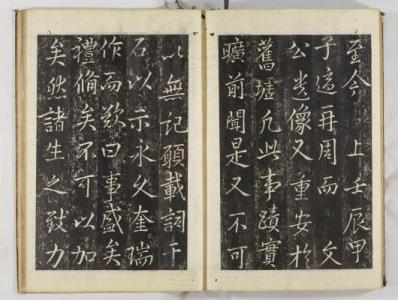 至今　上壬辰甲
子這再周而文
公遺像又重安於
舊墟凡此事蹟實
曠前聞是又不可
以無記願載詞下
石以示永久奎瑞
作而歎曰事盛矣
禮備矣不可以加
矣然諸生之致力